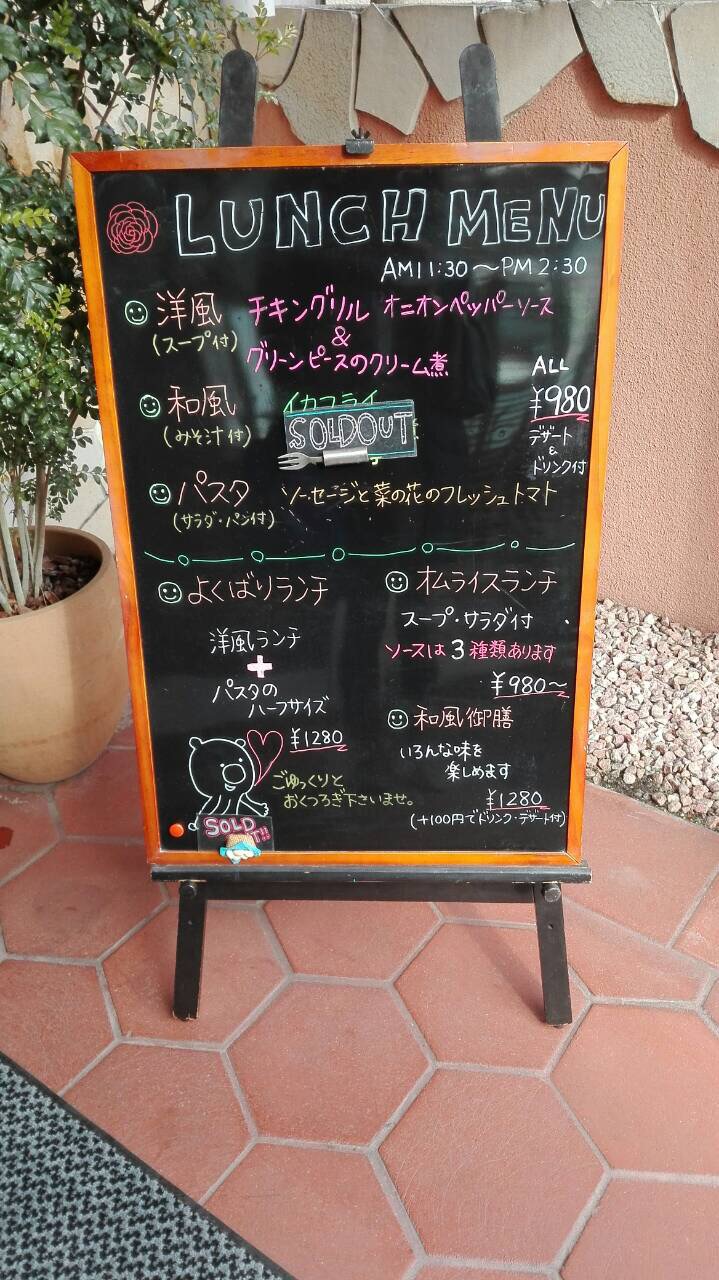 LUNCH MENU
AM11:30〜PM2:30
洋風 チキングリル オニオンペッパーソース
(スープ付) &
グリーンピースのクリーム煮
ALL
¥980
デザート
&
ドリンク付
和風 イカフライ
(みそ汁付)
SOLDOUT
パスタ ソーセージと菜の花のフレッシュトマト
(サラダ・パン付)
よくばりランチ
洋風ランチ
+
パスタの
ハーフサイズ
¥1280
ごゆっくりと
おくつろぎ下さいませ。
SOLD
オムライスランチ
スープ・サラダ付
ソースは3種類あります
¥980〜
和風御膳
いろんな味を
楽しめます
¥1280
(+100円でドリンク・デザート付)